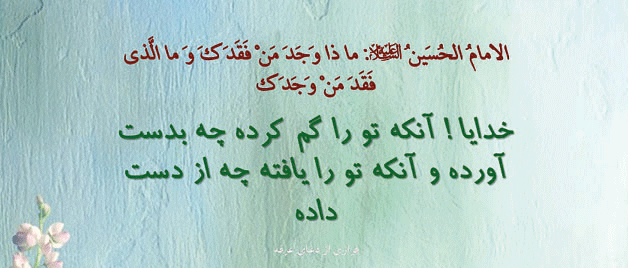 الامامُ الحُسَینُ علیه‌السلام: ما ذا وَجَدَ مَنْ فَقَدَكَ وَ ما الَّذی
فَقَدَ مَنْ وَجَدَكَ
خدایا ! آنکه تو را گم کرده چه بدست
آورده و آنکه تو را یافته چه از دست
داده
فرازی از دعای عرفه